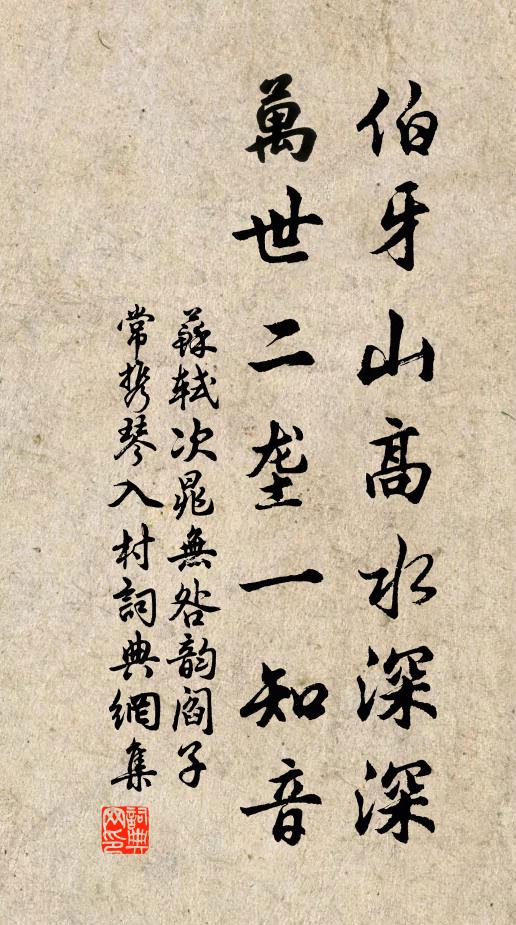 伯牙山高水深深
萬世二垄一知音
蘇軾次晁無咎韵阎子
常携琴入村詞典網集
詞典
网印